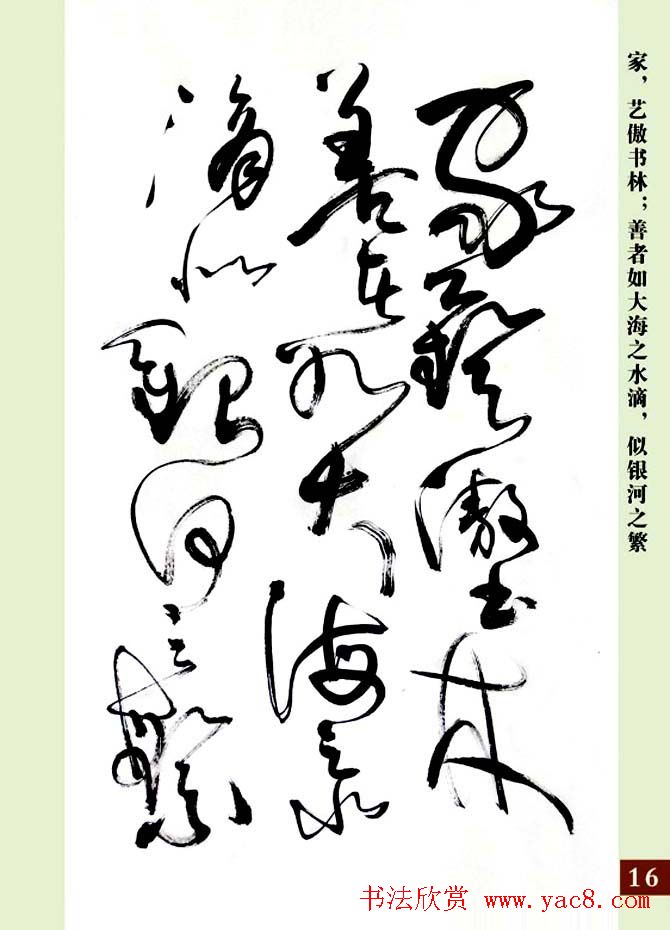 家藝傲书林
善者如大海之水
滴似銀河之繁
家，艺傲书林；善者如大海之水滴，似银河之繁
16
书法欣赏 www.yac8.com